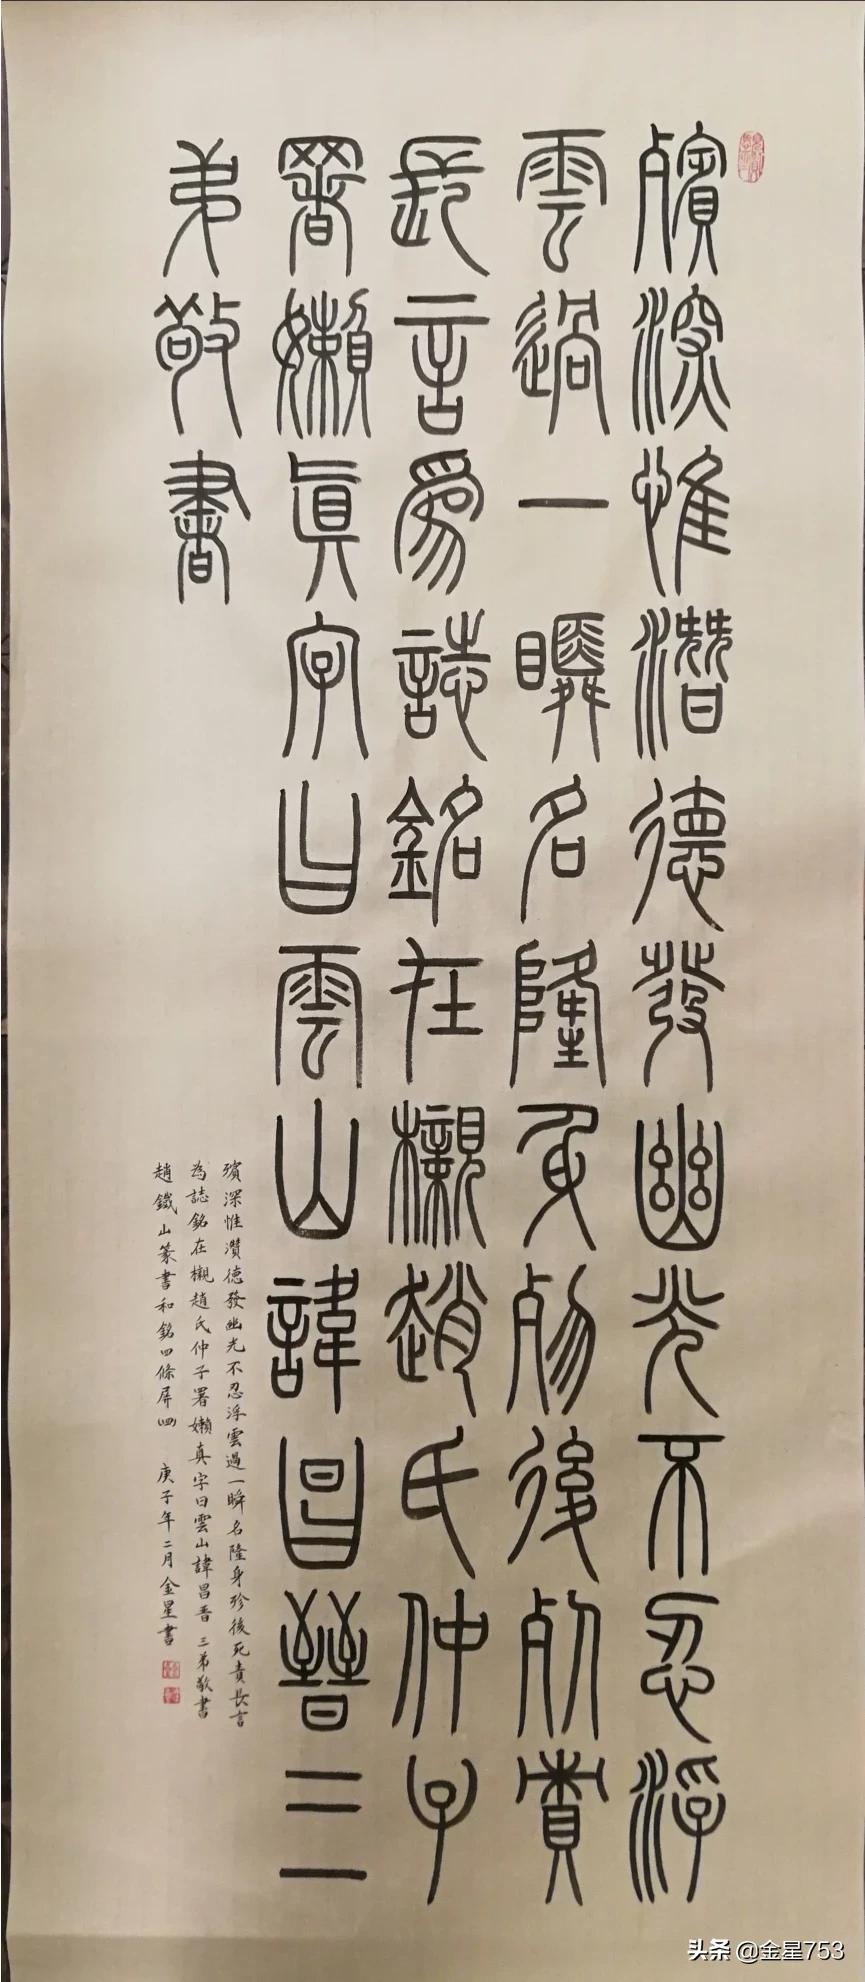 殯深惟潛德發幽光不忍浮
雲過一瞬名隆身殄後死責
長言爲誌銘在櫬趙氏仲子
署嬾眞字曰雲山諱昌晉三
弟敬書
殯深惟濳德發幽光不忍浮雲過一瞬名隆身殄後死責長言
為誌銘在櫬趙氏仲子署嬾真字曰雲山諱昌晋 三弟敬書
趙鐵山篆書和銘四條屏(四) 庚子年二月金星書
头条 @金星753